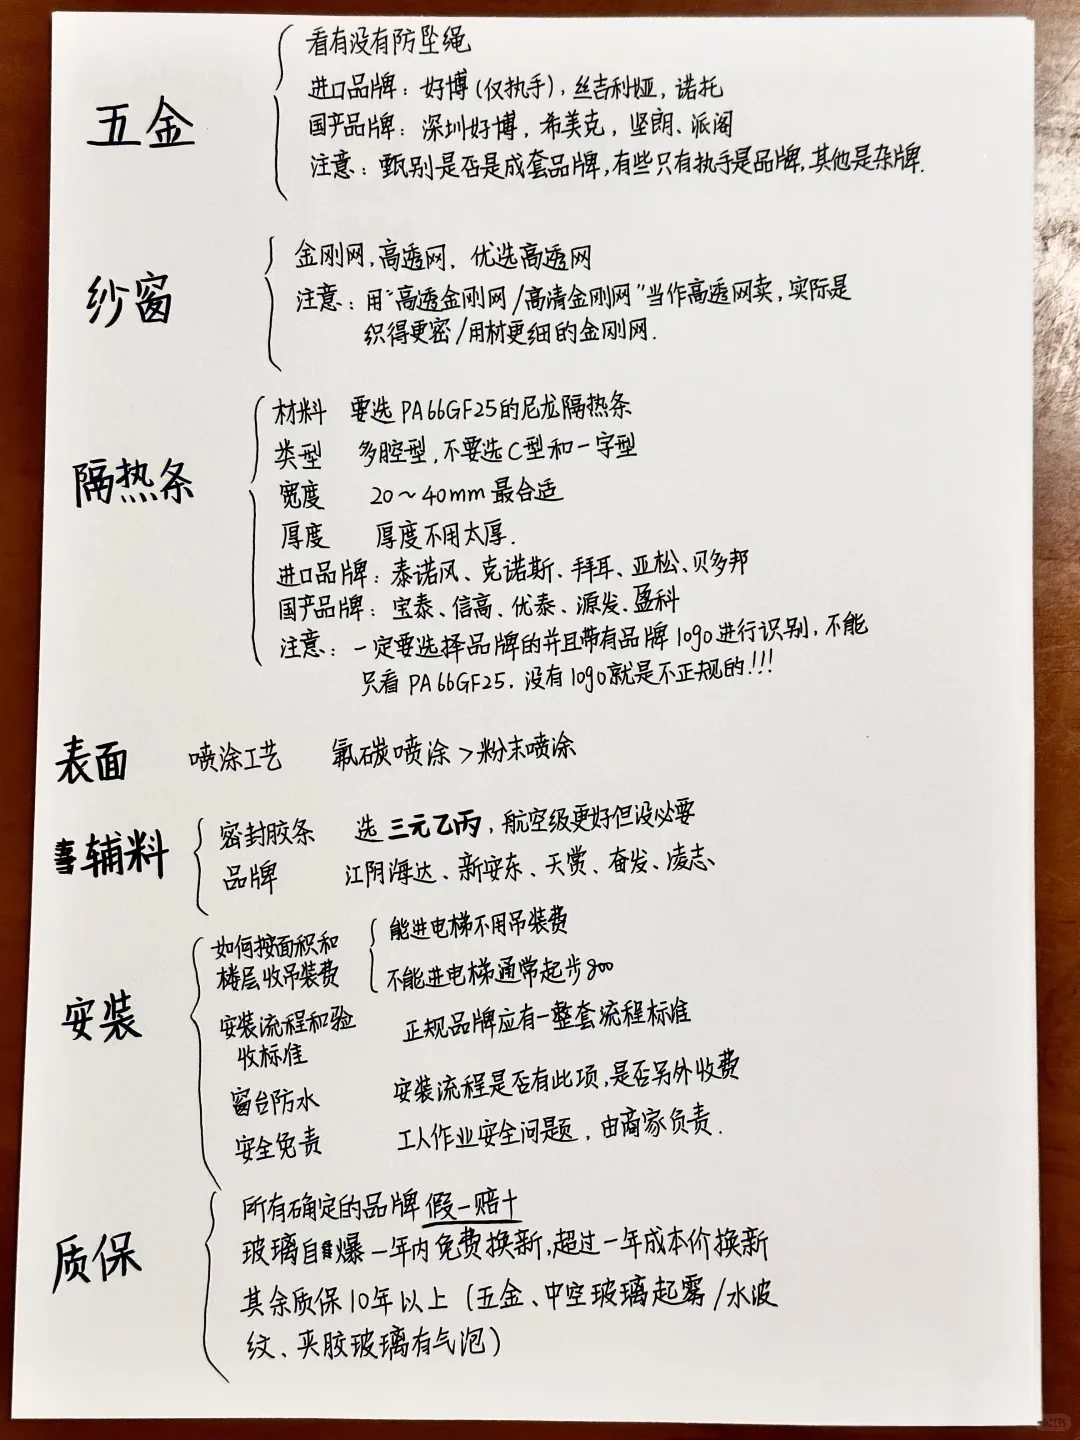 五金
看有没有防坠绳
进口品牌：好博(仅执手)，丝吉利娅，诺托
国产品牌：深圳好博，希美克，坚朗、派阁
注意：甄别是否是成套品牌，有些只有执手是品牌，其他是杂牌．
纱窗
金刚网，高透网，优选高透网
注意：用“高透金刚网/高清金刚网”当作高透网卖，实际是
织得更密/用材更细的金刚网．
隔热条
材料 要选PA66GF25的尼龙隔热条
类型 多腔型，不要选C型和一字型
宽度 20～40mm最合适
厚度 厚度不用太厚．
进口品牌：泰诺风、克诺斯、拜耳、亚松、贝多邦
国产品牌：宝泰、信高、优泰、源发、盈科
注意：一定要选择品牌的并且带有品牌logo进行识别，不能
只看PA66GF25．没有logo就是不正规的！！！
表面 喷涂工艺 氟碳喷涂>粉末喷涂
辅料
密封胶条 选三元乙丙，航空级更好但没必要
品牌 江阴海达、新安东、天赏、奋发、凌志
安装
如何按面积和
楼层收吊装费
能进电梯不用吊装费
不能进电梯通常起步800
安装流程和验
收标准
正规品牌应有一整套流程标准
窗台防水 安装流程是否有此项，是否另外收费
安全免责 工人作业安全问题，由商家负责．
质保
所有确定的品牌假一赔十
玻璃自爆一年内免费换新，超过一年成本价换新
其余质保10年以上（五金、中空玻璃起雾/水波
纹、夹胶玻璃有气泡）